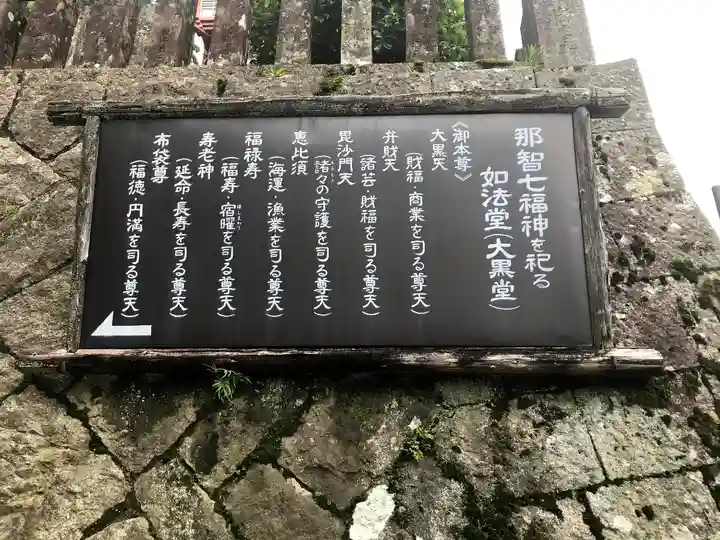 那智七福神を祀る
如法堂(大黒堂)
《御本尊》
大黒天
(財福・商業を司る尊天)
弁財天
(諸芸・財福を司る尊天)
毘沙門天
(諸々の守護を司る尊天)
恵比須
(海運・漁業を司る尊天)
福禄寿
(福寿・宿曜を司る尊天)
寿老神
(延命・長寿を司る尊天)
布袋尊
(福徳・円満を司る尊天)